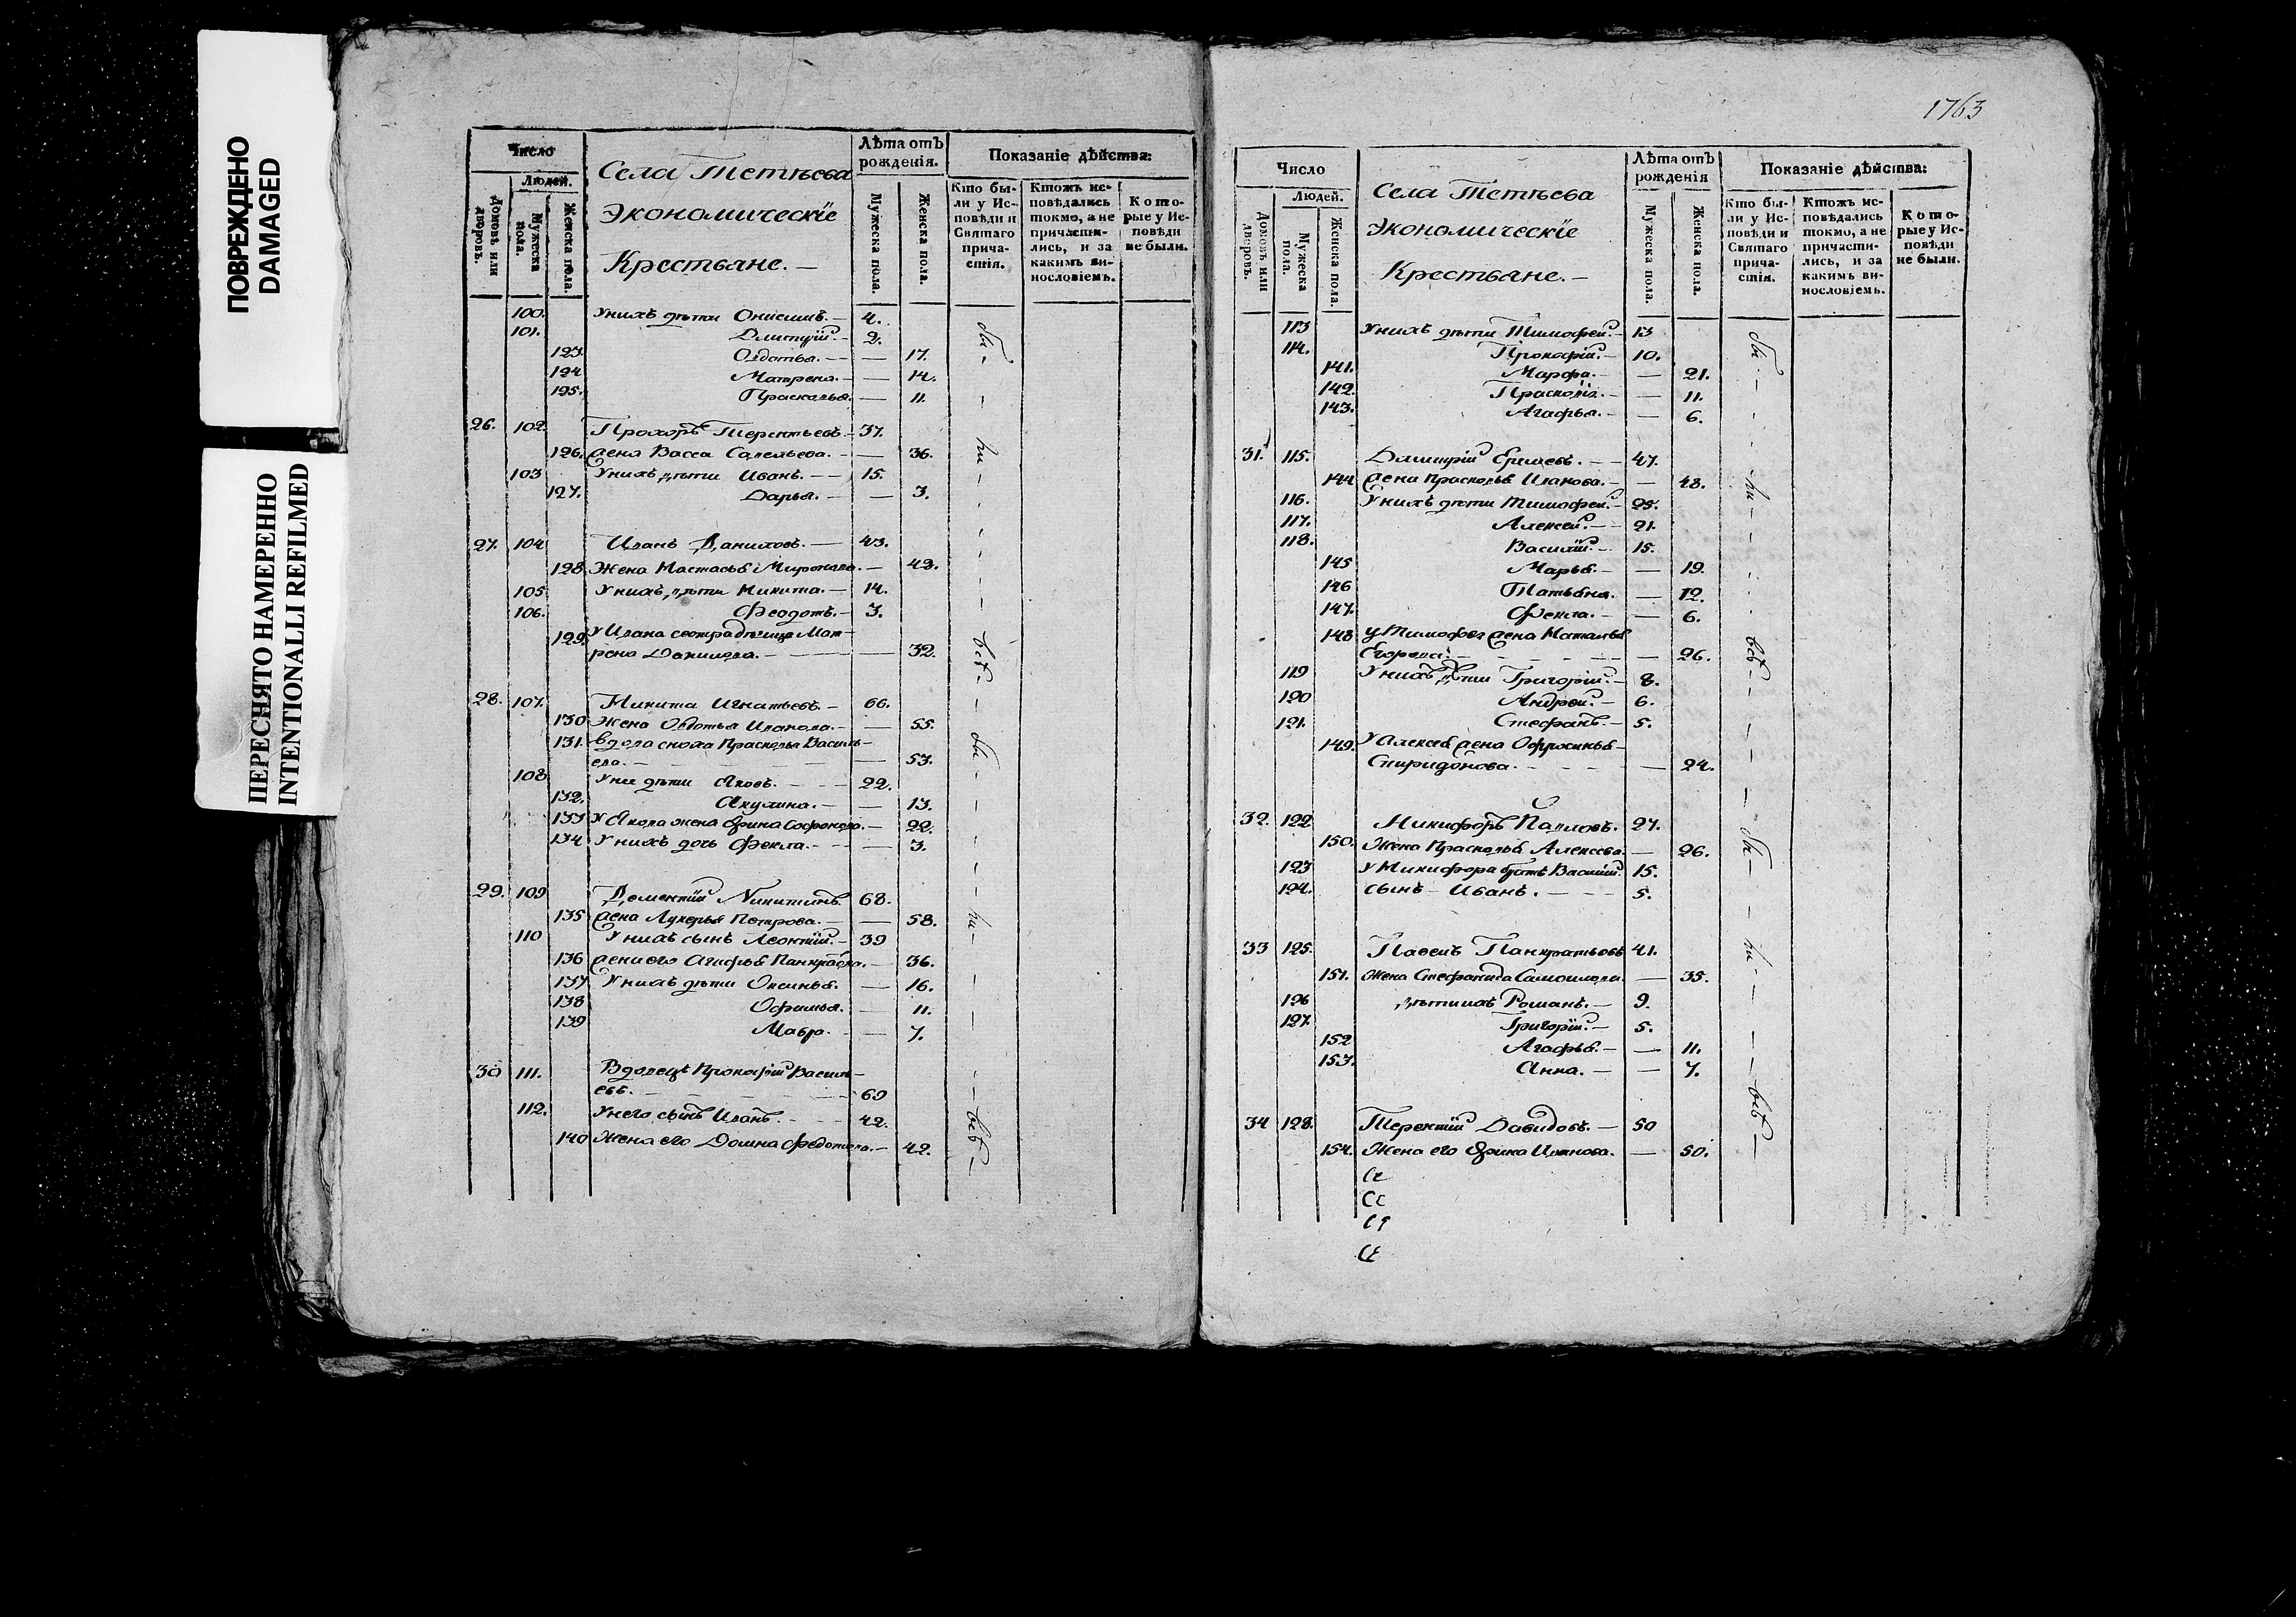 ПОВРЕЖДЕНО
DAMAGED
ПЕРЕСНЯТО НАМЕРЕННО
INTENTIONALLI REFILMED
Число
Людей.
Домовъ или дворовъ.
Мужеска пола.
Женска пола.
Села Тетѣева
Экономическіе
Крестьяне. —
Лѣта отъ рожденія.
Мужеска пола.
Женска пола.
Показаніе дѣйства:
Кто бы-
ли у Ис-
повѣди и
Святаго
прича-
стія.
Ктожъ ис-
повѣдались
токмо, а не
причасти-
лись, и за
какимъ ви-
нословіемъ.
Кото-
рые у Ис-
повѣди
не были.
100. Унихъ дѣти Онисимъ. — 4.
101. Дмитрій. — 2.
123. Овдотья. — — 17.
124 Матрена. — — 14.
125. Прасковья. — 11.
26. 102. Прохоръ Терентьевъ. — 37.
126. жена Васса Савельева. — — 36.
103 Унихъ дѣти Иванъ. — — 15.
127. Дарья. — — 3.
27. 104 Иванъ Даниловъ. — 43.
128. Жена Настасья Миронова. — 42.
105 Унихъ дѣти Никита. — 14.
106. Феодотъ. — 3.
129. У Ивана сестра дѣвица Мат-
рена Данилова. — — 32.
28. 107. Никита Игнатьевъ. — 66.
130 Жена Овдотья Иванова. — — 55.
131. вдова сноха Прасковья Василь-
ева. — — 53.
108 Уней дѣти Яковъ. — 22.
132. Акулина. — — 13.
133 У Якова жена Ѳрина Софонова. — 22.
134 Унихъ дочь Фекла. — — 3.
29. 109 Дементій Никитинъ 68.
135 жена Лукерья Петрова. — — 58.
110 Унихъ сынъ Леонтій. — 39
136 жена его Агафья Панкратова. — 36.
137 Унихъ дѣти Оксинья. — 16.
138 Офимья. — 11.
139 Мавра. — — 7.
30 111. Вдовецъ Прокофій Василь-
евъ. — 69
112. Унего сынъ Иванъ. — 42.
140 Жена его Домна Федотова. — 42.
бы-
ли-
всѣ
бы-
ли-
всѣ
1763
Число
Людей.
Домовъ или дворовъ.
Мужеска пола.
Женска пола.
Села Тетѣева
Экономическіе
Крестьяне. —
Лѣта отъ рожденія
Мужеска пола.
Женска пола.
Показаніе дѣйства:
Кто бы-
ли у Ис-
повѣди и
Святаго
прича-
стія.
Ктожъ ис-
повѣдались
токмо, а не
причасти-
лись, и за
какимъ ви-
нословіемъ.
Кото-
рые у Ис-
повѣди
не были.
113 Унихъ дѣти Тимофей. — 13
114. Прокофій. — 10.
141. Марфа. — — 21.
142. Прасковія. — — 11.
143. Агафья. — — 6.
31. 115. Дмитрій Ершевъ. — — 47.
144 жена Прасковья Иванова. — — 48.
116. Унихъ дѣти Тимофей. — 25.
117. Алексей. — — 21.
118. Василій. — 15.
145 Марья. — — 19.
146 Татьяна. — 12.
147. Фекла. — — 6.
148 у Тимофея жена Наталья
Егорова. — — 26.
119 Унихъ дѣти Григорій. — 8.
120 Андрей. — 6.
121. Стефанъ. — 5.
149. У Алексея жена Офросинья
Спиридонова. — 24.
32. 122 Никифоръ Павловъ. 27.
150. Жена Прасковья Алексеева — 26.
123 У Никифора братъ Василій. 15.
124. сынъ — Иванъ. — 5.
33 125. Павелъ Панкратьевъ 41.
151. Жена Стефанида Самойлова. — 35.
126 дѣти ихъ Романъ. — 9.
127. Григорій. — 5.
152 Агафья. — — 11.
153. Анна. — — 7.
34 128. Терентій Давидовъ. — 50
154. Жена его Ѳрина Иванова. — 50.
бы-
ли-
всѣ-
бы-
ли-
всѣ-